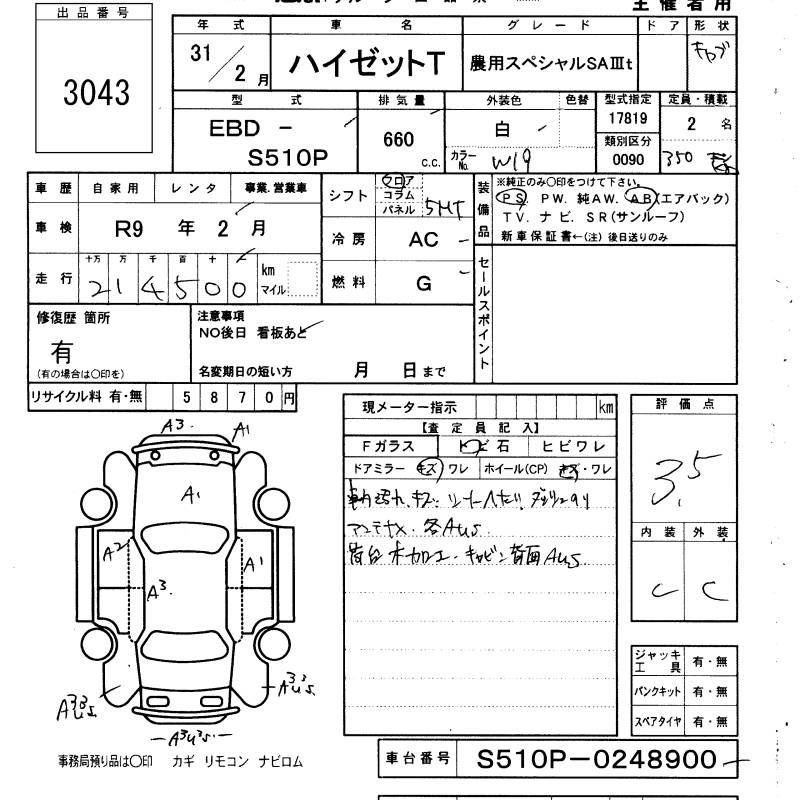 主催者用
出品番号
3043
年式 車名 グレード ドア 形状
31/2月 ハイゼットT 農用スペシャルSAⅢt キャブ
型式 排気量 外装色 色替 型式指定 定員・積載
EBD - S510P 660 c.c. 白 17819 2名
類別区分
カラーNo. W19 0090 350
車歴 自家用 レンタ 事業.営業車
シフト フロア コラム パネル 5MT
装備品 ※純正のみ○印をつけて下さい。
PS. PW. 純AW. AB(エアバック)
TV. ナビ. SR(サンルーフ)
新車保証書←(注)後日送りのみ
車検 R9年2月
冷房 AC
走行 十万 万 千 百 十
214500 km マイル
燃料 G
セールスポイント
修復歴 箇所
有
(有の場合は○印を)
注意事項
NO後日 看板あと
名変期日の短い方 月 日まで
リサイクル料 有・無 5870円
現メーター指示 km
【査定員記入】
Fガラス トビ石 ヒビワレ
ドアミラー キズ ワレ ホイール(CP) キズ・ワレ
各AUS
荷台木加工. キャビン背面AUS
評価点
3.5
内装 外装
C C
A3. A1
A1
A2 A1
A3.
ジャッキ工具 有・無
パンクキット 有・無
スペアタイヤ 有・無
車台番号 S510P-0248900
事務局預り品は○印 カギ リモコン ナビロム